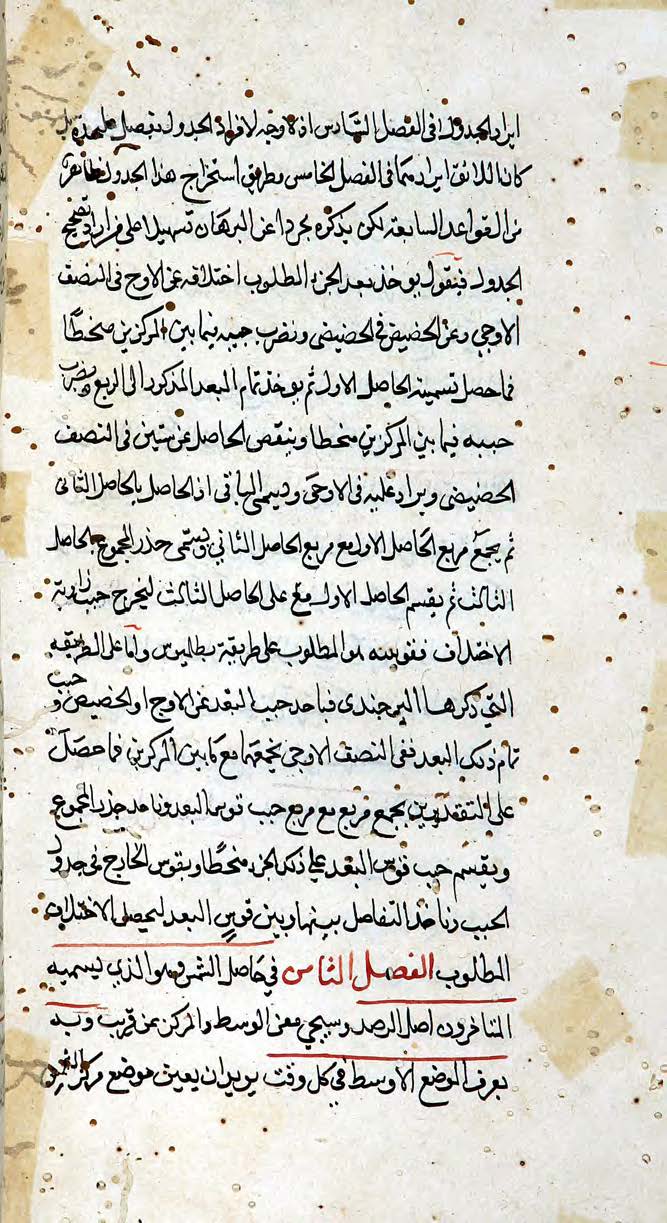 ايراد الجدول في الفصل السادس اذ لا وجه لافراد الجدول بفصل
كان اللائق ايراد هما في الفصل الخامس وطريق استخراج هذا الجدول ظاهر
من القواعد السابعة لكن يذكره مجردا عن البرهان تسهيلا على من اراد تصحيح
الجدول فنقول يوخذ بعد الجزء المطلوب اختلافه عن الاوج في النصف
الاوجي وعن الحضيض في الحضيضي ونضرب جيبه فيما بين المركزين منحطا
فما حصل نسميه الحاصل الاول ثم يوخذ تمام البعد المذكور الى الربع ونضرب
جيبه فيما بين المركزين منحطا وينقص الحاصل عن ستين في النصف
الحضيضي ويزاد عليه في الاوجي ويسمى الباقي او الحاصل بالحاصل الثاني
ثم يجمع مربع الحاصل الاول مع مربع الحاصل الثاني ويسمى جذر المجموع بالحاصل
الثالث ثم يقسم الحاصل الاول على الحاصل الثالث ليخرج جيب زاوية
الاختلاف فقوسه هو المطلوب على طريقة بطليموس واما على الطريقه
التي ذكرها البرجندي فناخذ جيب البعد عن الاوج او الحضيض و جيب
تمام ذلك البعد ففي النصف الاوجي نجمعها مع ما بين المركزين فما حصل
على التقديرين نجمع مربعه مع مربع جيب قوس البعد وناخذ جذر المجموع
ويقسم جيب قوس البعد على ذلك الجذر منحطا ويقوس الخارج في جدول
الجيب وناخذ التفاضل بينها وبين قوس البعد ليحصل الاختلاف
المطلوب الفصل الثامن في حاصل الشمس وهو الذي يسميه
المتاخرون اصل الرصد وسيجي معنى الوسط والمركز عن قريب وبه
يعرف الموضع الاوسط في كل وقت يريد ان يعين موضع مركز